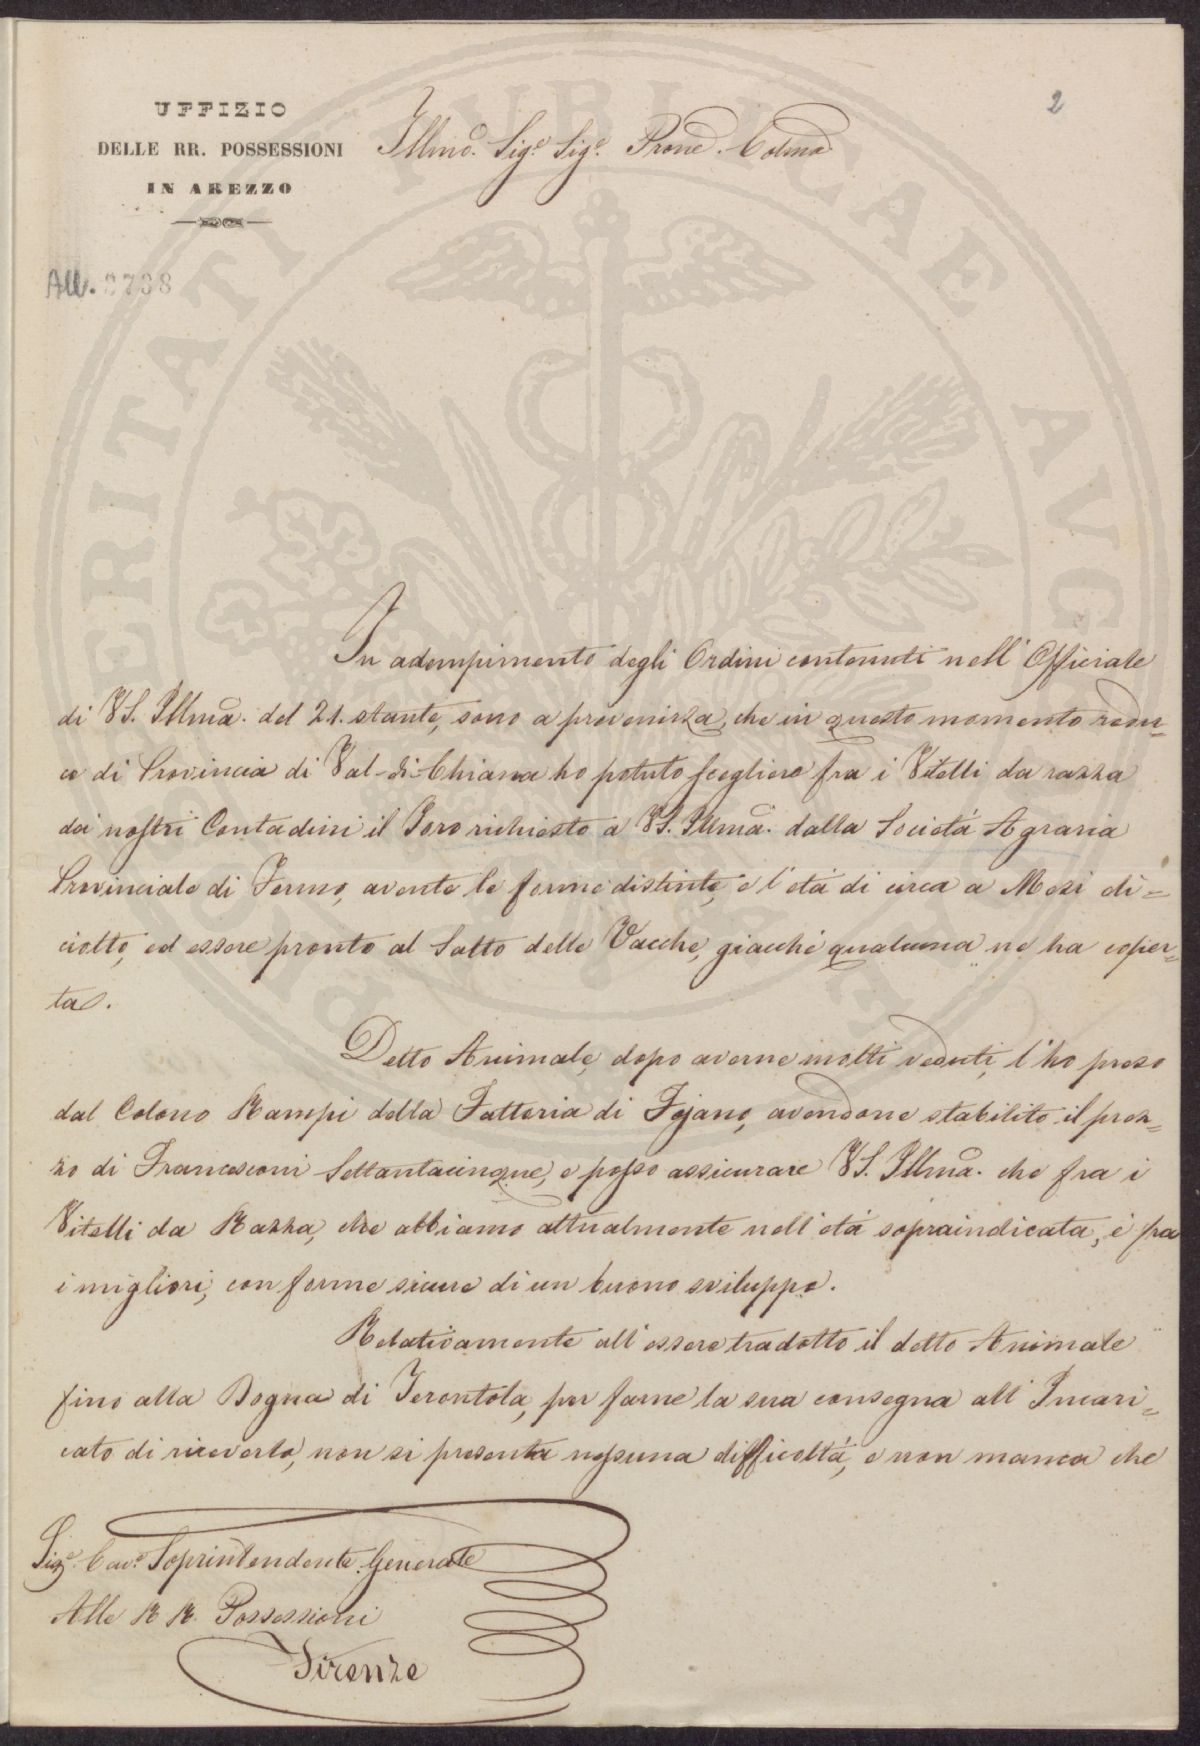 UFFIZIO
DELLE RR. POSSESSIONI
IN AREZZO
Illmo. Sigre. Sigre. Prone. Colmo
2
All. 3738
In adempimento degli Ordini contenuti nell' Officiale
di VS. Illma. del 21. stante, sono a prevenirla, che in questo momento redu-
ce di Provincia di Val-di-Chiana ho potuto scegliere fra i Vitelli da razza
dei nostri Contadini il Toro richiesto a VS. Illma. dalla Società Agraria
Provinciale di Fermo, avente le forme distinte, e l'età di circa a Mesi di=
ciotto, ed essere pronto al Salto delle Vacche, giacchè qualcuna ne ha coper=
ta.
Detto Animale, dopo averne molti veduti, l'ho preso
dal Colono Rampi della Fattoria di Fojano, avendone stabilito il prez=
zo di Francesconi Settantacinque, e posso assicurare VS. Illma. che fra i
Vitelli da Razza, che abbiamo attualmente nell'età sopraindicata, è fra
i migliori, con forme sicure di un buono sviluppo.
Relativamente all'essere tradotto il detto Animale
fino alla Dogna di Terontola, per farne la sua consegna all' Incari=
cato di riceverlo, non si presenta nessuna difficoltà, e non manca che
Sigre. Cave. Soprintendente Generale
Alle RR. Possessioni
Firenze
PUBLICAE